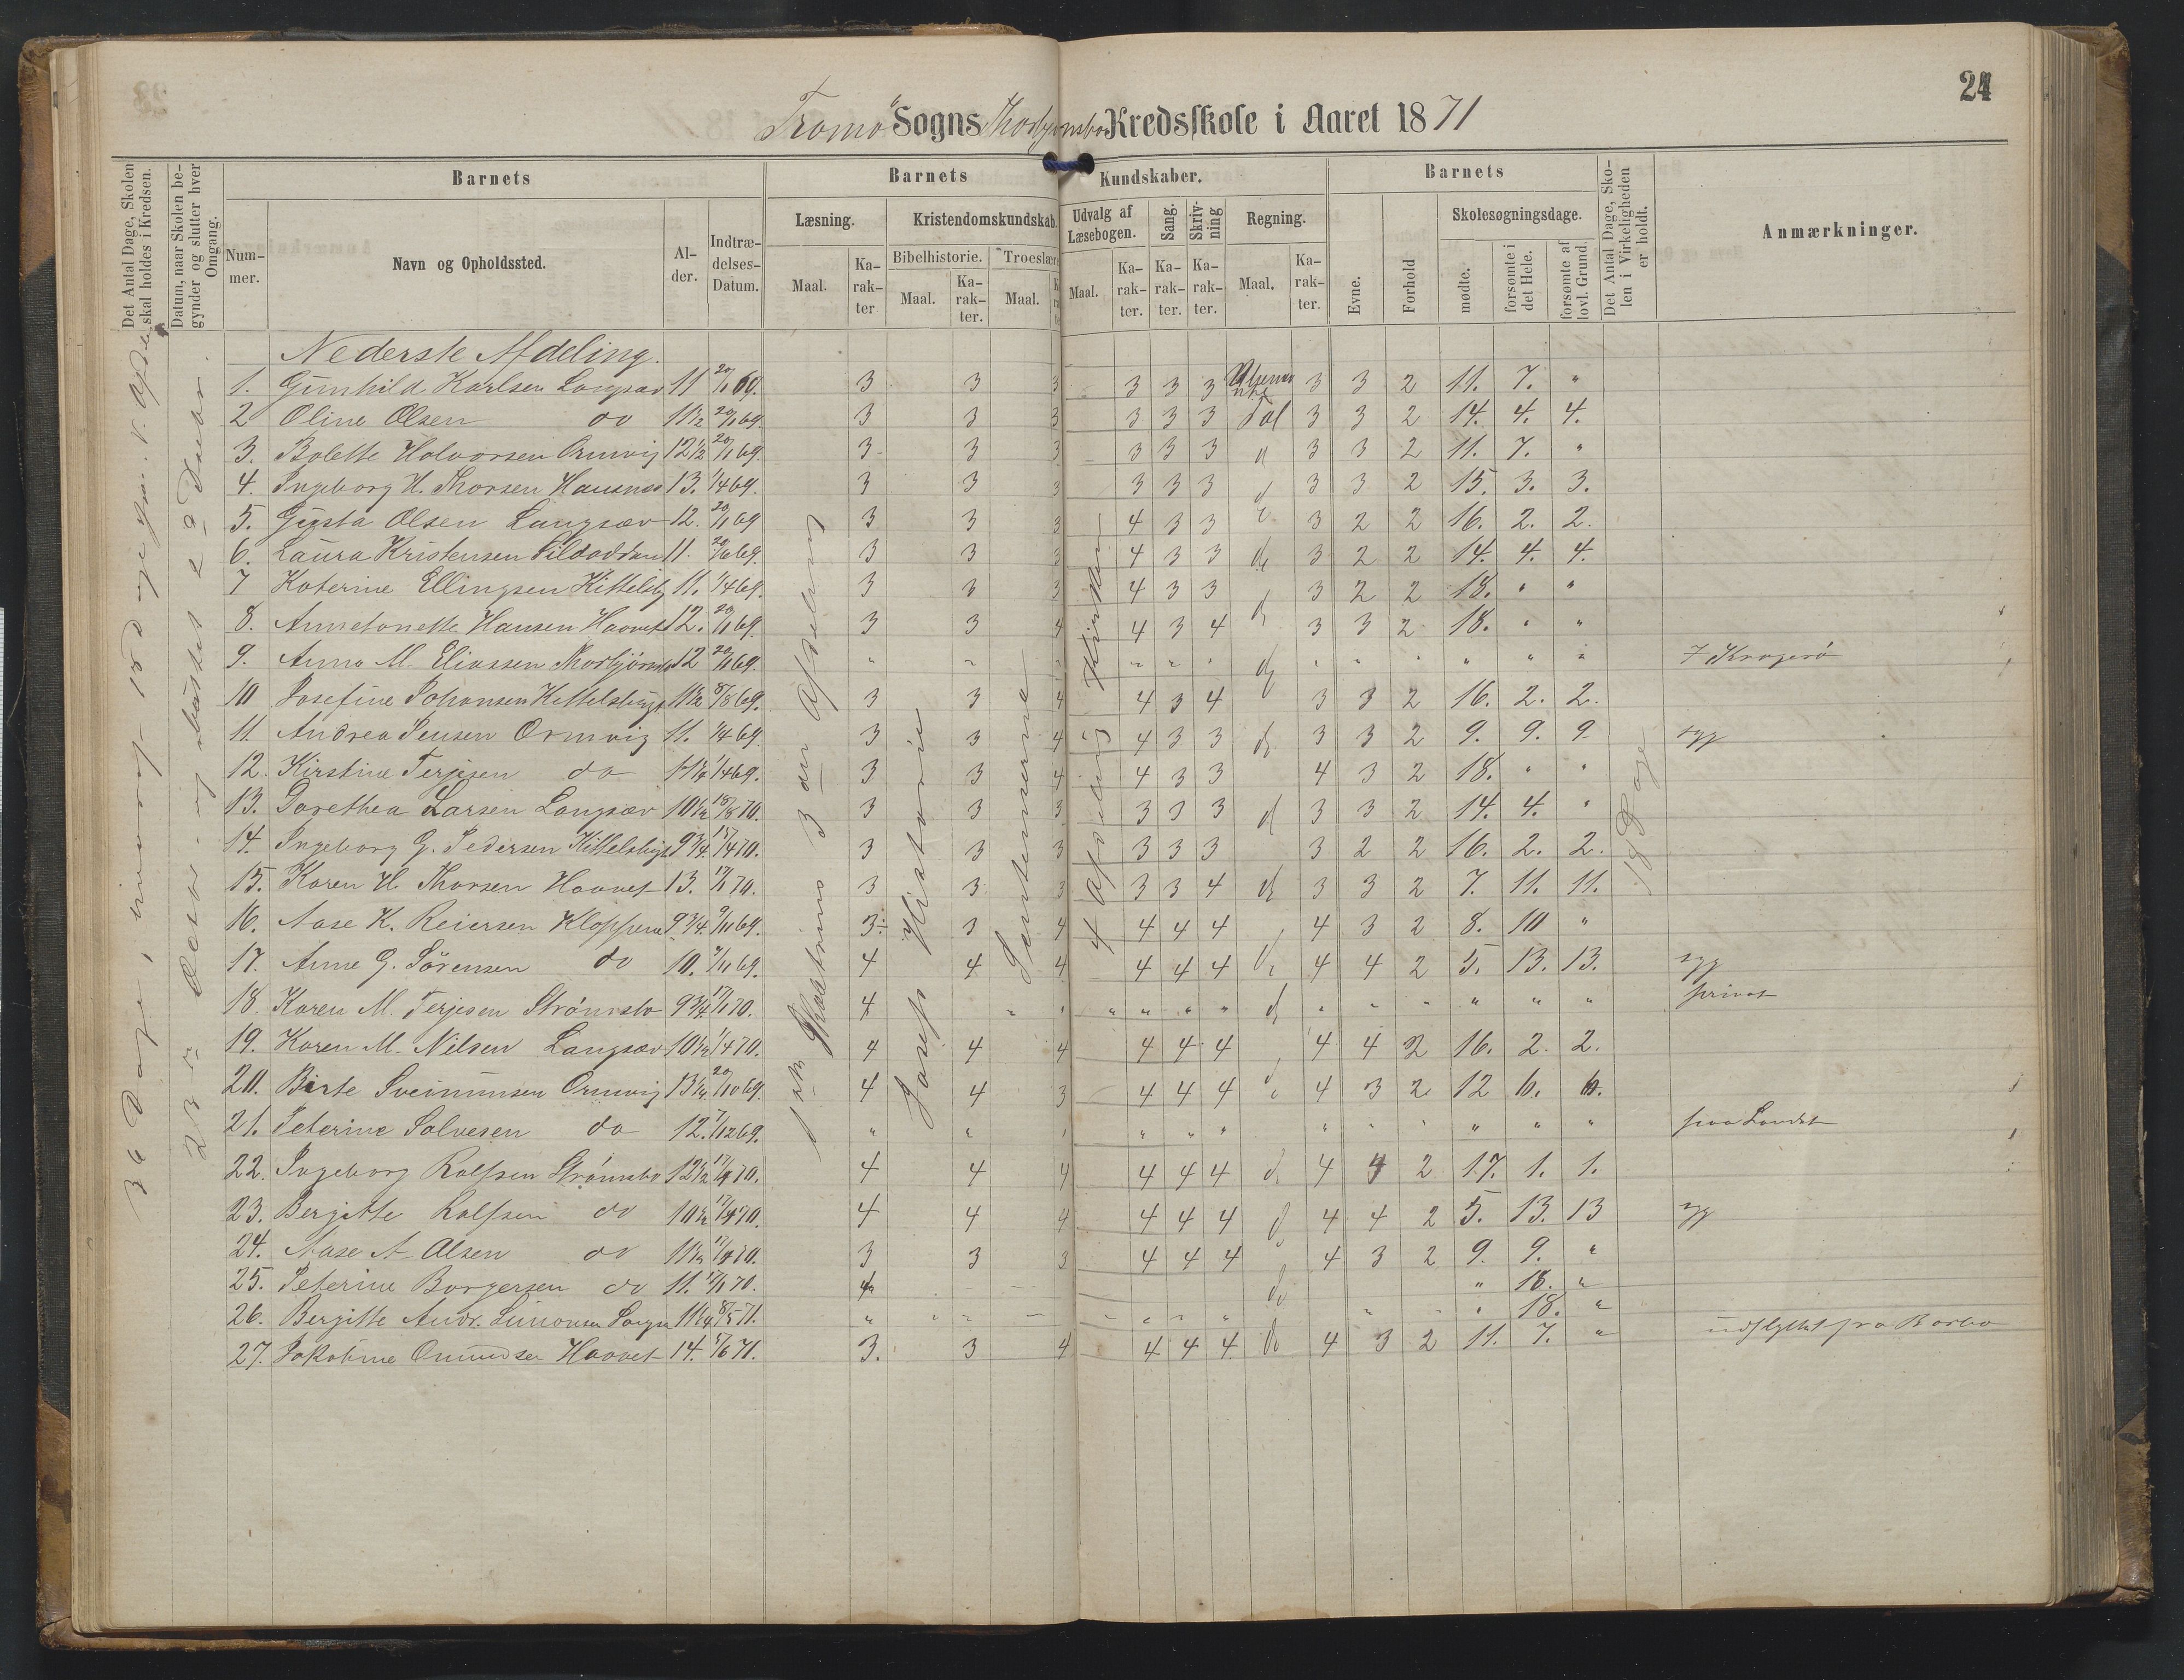 24
Tromø Sogns Thorbjørnsbo Kredsskole i Aaret 1871
Det Antal Dage, Skolen skal holdes i Kredsen.
Datum, naar Skolen begynder og slutter hver Omgang.
Barnets
Nummer.
Navn og Opholdssted.
Alder.
Indtrædelses-Datum.
Barnets Kundskaber.
Læsning.
Maal.
Karakter
Kristendomskundskab.
Bibelhistorie.
Maal.
Karakter.
Troeslære
Maal.
Udvalg af Læsebogen.
Maal.
Karakter.
Sang.
Karakter.
Skrivning
Karakter.
Regning.
Maal.
Karakter.
Barnets
Evne.
Forhold
Skolesøgningsdage.
mødte.
forsømte i det Hele.
forsømte af lovl. Grund.
Det Antal Dage, Skolen i Virkeligheden er holdt.
Anmærkninger.
36 Dage,
3 die Afdeling
Josefs Historie
4 Afdeling
18 Dage
Nederste Afdeling.
1. Gunhild Karlsen Langsæv 11 20/11 69. 3 3 3 3 3 3 3 3 2 11. 7. "
2 Oline Olsen do 11½ 20/11 69. 3 3 3 3 3 3 Tal 3 3 2 14. 4. 4.
3. Bolette Halvorsen Ormvig 12½ 20/11 69. 3 3 3 3 3 3 3 3 2 11. 7. "
4. Ingeborg H. Thorsen 13. 1/4 69. 3 3 3 3 3 3 3 3 2 15. 3. 3.
5. Gusta Olsen Langsæv 12. 20/11 69 3 3 3 4 3 3 3 2 2 16. 2. 2.
6. Laura Kristensen 11. 69. 3 3 3 4 3 3 do 3 2 2 14. 4. 4.
7 Katerine Ellingsen Kittelsb 11. 1/4 69. 3 3 3 4 3 3 3 2 2 18. " "
8. Annetonette Hansen Haavet 12. 20/11 69. 3 3 4 4 3 4 3 3 2 18. " "
9. Anna M. Eliassen Thorbjørnsb 12 20/11 69. " " " " " " " " " " " " i Kragerø
10 Josefine Johansen Kittelsbugt 11½ 8/8 69. 3 3 4 4 3 4 3 3 2 16. 2. 2.
11. Andrea Jensen Ormvig 11. 1/4 69. 3 3 4 4 3 3 do 3 3 2 9. 9. 9. syg
12. Kirstine Terjesen do 1/4 69. 3 3 4 4 3 3 4 3 2 18. " "
13. Dorethea Larsen Langsæv 10½ 70. 3 3 3 3 3 3 3 3 2 14. 4. "
14. Ingeborg G. Pedersen Kittelsbugt 9¾ 70. 3 3 3 3 3 3 3 2 2 16. 2. 2.
15. Karen H Thorsen Haavet 13. 70. 3 3 3 3 3 4 do 3 3 2 7. 11. 11.
16. Aase K. Reiersen Kloppene 9¾ 9/11 69. 3 3 4 4 4 4 4 3 2 8. 10 "
17. Anne G. Sørensen do 10. 9/11 69. 4 4 4 4 4 4 do 4 4 2 5. 13. 13. syg
18. Karen M. Terjesen Strømsbo 9¾ 70. 4 " " " " " " do " " " " " " privat
19. Karen M. Nilsen Langsæv 10½ 1/4 70. 4 4 4 4 4 4 4 4 2 16. 2. 2.
20. Birte Sveinunsen Ormvig 20/10 69. 4 4 3 4 4 4 4 3 2 12 6. 6.
21. Peterine Salvesen do 12. 7/12 69. " " " " " " " " " " " " paa Landet
22. Ingeborg Rolfsen Strømsbo 12½ 70. 4 4 4 4 4 4 4 4 2 17. 1. 1.
23. Bergitte Rolfsen do 10½ 70. 4 4 4 4 4 4 4 4 2 5. 13. 13 syg
24. Aase A Olsen do 11½ 70. 3 3 3 4 4 4 4 3 2 9. 9. "
25. Peterine Borgersen do 11. 70. do " 18. "
26. Bergitte Andr. Simonsen 71. " " " " " " " " 18. "
27. Jakobine Omundsen Haavet 14. 71. 3. 3 4 4 4 4 do 4 3 2 11. 7. " indflyttet fra Barbo